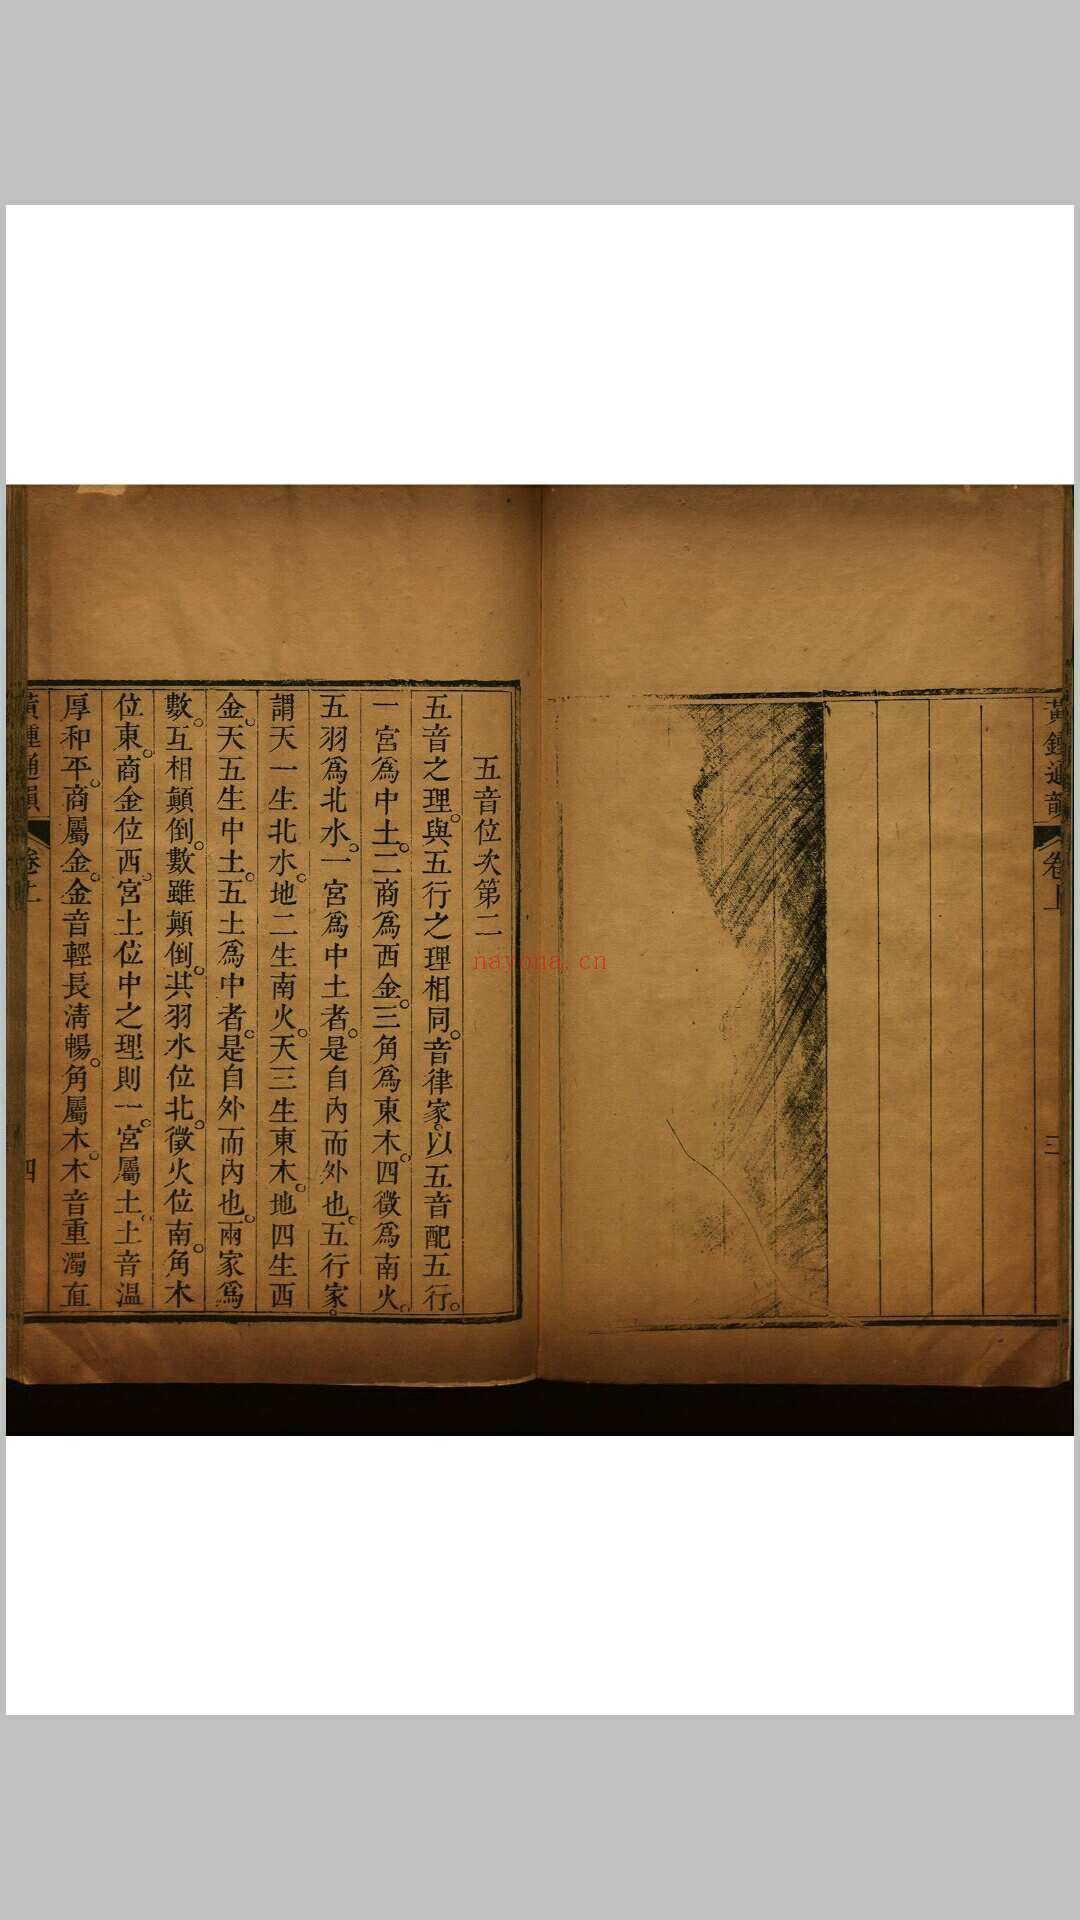 黃鍾通韻 卷上 三
五音位次第二
五音之理。與五行之理相同。音律家。以五音配五行。
一宮為中土。二商為西金。三角為東木。四徵為南火。
五羽為北水。一宮為中土者。是自內而外也。五行家。
謂天一生北水。地二生南火。天三生東木。地四生西
金。天五生中土。五土為中者。是自外而內也。兩家為
數。互相顛倒。數雖顛倒。其羽水位北。徵火位南。角木
位東。商金位西。宮土位中之理則一。宮屬土。土音温
厚和平。商屬金。金音輕長清暢。角屬木。木音重濁直
黃鍾通韻 卷上 四
nayona.cn